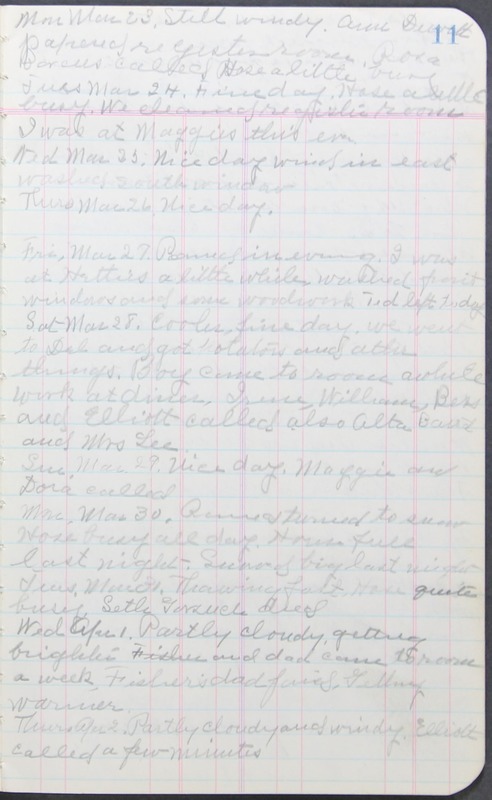 11
Mon Mar 23, Still windy. Ann
Papered register room. Rosa
called Hose a little busy
Tues Mar 24. Fine day. Hose a little
busy. We cleaned register room
I was at Maggies this eve
Wed Mar 25. Nice day wind in east
washed south window
Thurs Mar 26 Nice day.
Fri, Mar 27. Rained in evening. I was
at Hatties a little while, washed front
windows and some woodwork Ted left today
Sat Mar 28. Cooler, fine day. we went
to and got potatoes and other
things. Boy came to room awhile
work at diner, Irene, William, Bess
and Elliott called also Alta
and Mrs Lee
Sun, Mar 29. Nice day. Maggie and
Dora called
Mon, Mar 30. Rained turned to snow
Hose busy all day. House full
last night. Snowed big last night
Tues, Mar 31. Thawing fast Hose quite
busy. Seth died
Wed Apr 1. Partly cloudy, getting
brighter Fisher and dad came to room
a week Fisher's dad
warmer.
Thurs Apr 2. Partly cloudy and windy. Elliott
called a few minutes